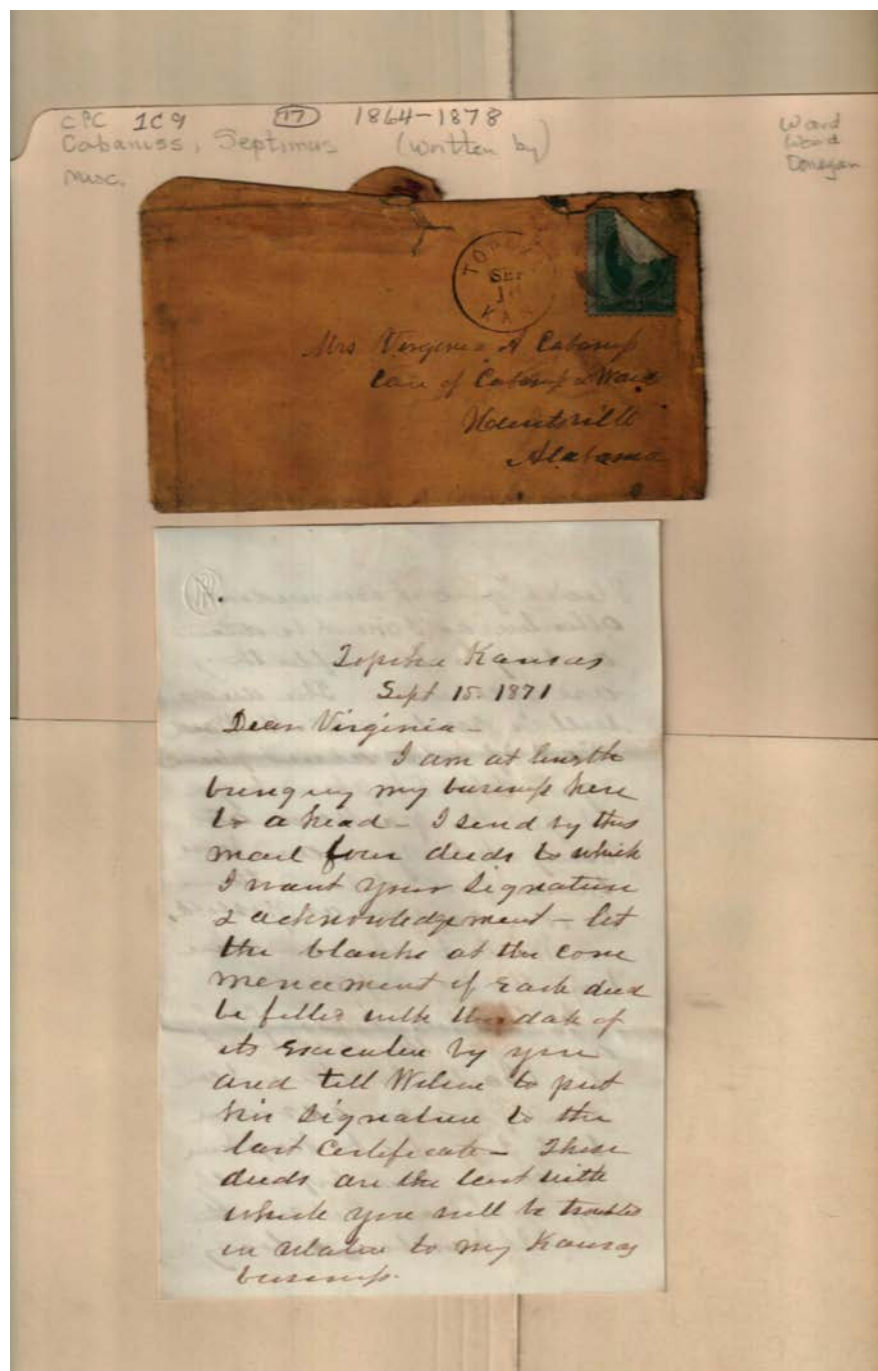 CPC 1C9 17 1864-1878
Cabaniss, Septimus (written by)
Misc.
Ward
Wood
Donegan
TOPE
SEP
KAN
Mrs Virginia A Cabaniss
Care of Cabaniss & Ward
Huntsville
Alabama
Topeka Kansas
Sept 15. 1871
Dear Virginia -
I am at length
bringing my business here
to a head - I send by this
mail four deeds to which
I want your signature
& acknowledgement - let
the blanks at the com
mencement of each deed
be filled with the date of
its execution by you
and tell Wilson to put
his signature to the
last certificate - These
deeds are the last with
which you will be troubled
in relation to my Kansas
business.